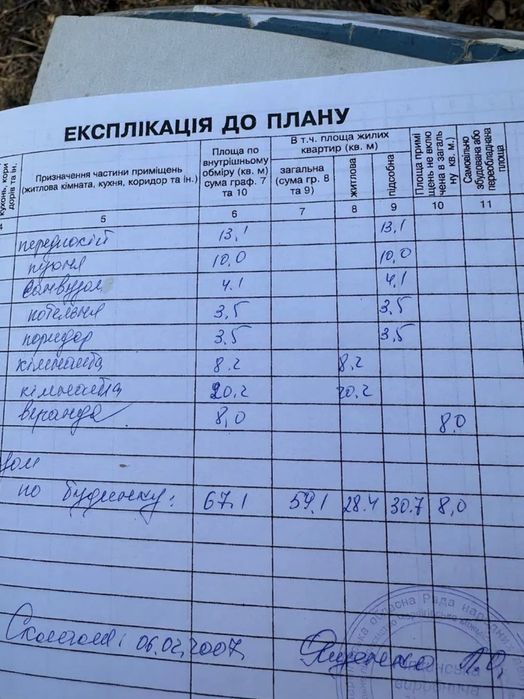 ЕКСПЛІКАЦІЯ ДО ПЛАНУ
кухонь, кори
дорів та ін.
Призначення частини приміщень
(житлова кімната, кухня, коридор та ін.)
Площа по
внутрішньому
обміру (кв. м)
сума граф. 7
та 10
В т.ч. площа жилих
квартир (кв. м)
загальна
(сума гр. 8
та 9)
житлова
підсобна
Площа примі
щень не вклю
чена в загаль
ну (кв. м.)
Самовільно
збудована або
переобладнана
площа
5 6 7 8 9 10 11
передпокій 13,1 13,1
кухня 10,0 10,0
санвузол 4,1 4,1
котельня 3,5 3,5
коридор 3,5 3,5
кімната 8,2 8,2
кімната 20,2 20,2
веранда 8,0 8,0
по будинку: 67,1 59,1 28.4 30.7 8,0
06.02.2007
обласна Рада народних